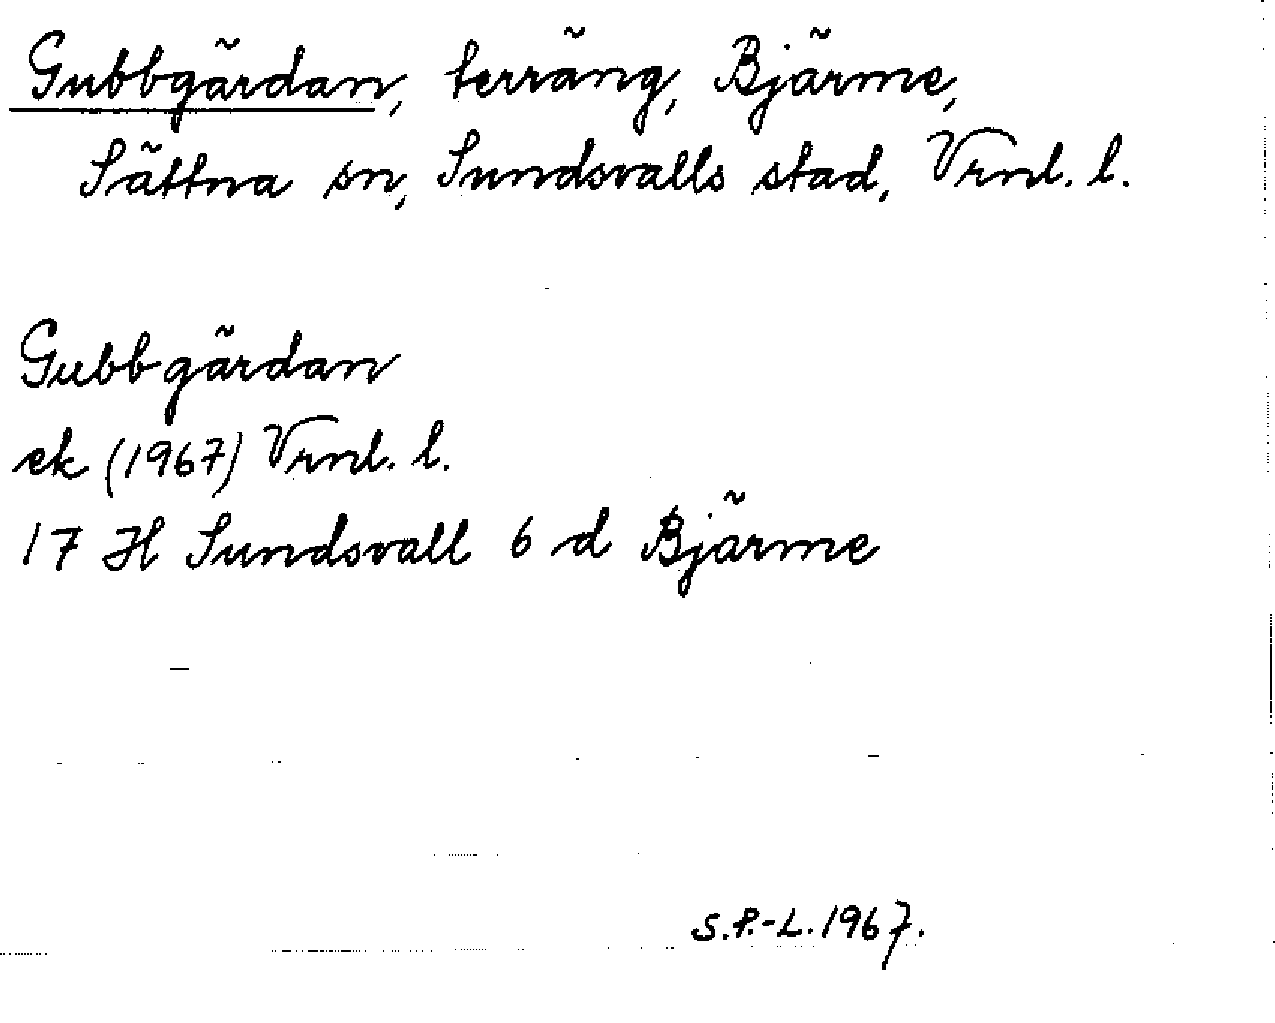 Gubbgärdan, terräng, Bjärme,
Sättna sn, Sundsvalls stad, Vrnl. l.
Gubbgärdan
ek (1967) Vrnl. l.
17 H Sundsvall 6 d Bjärme
S.P.-L. 1967.